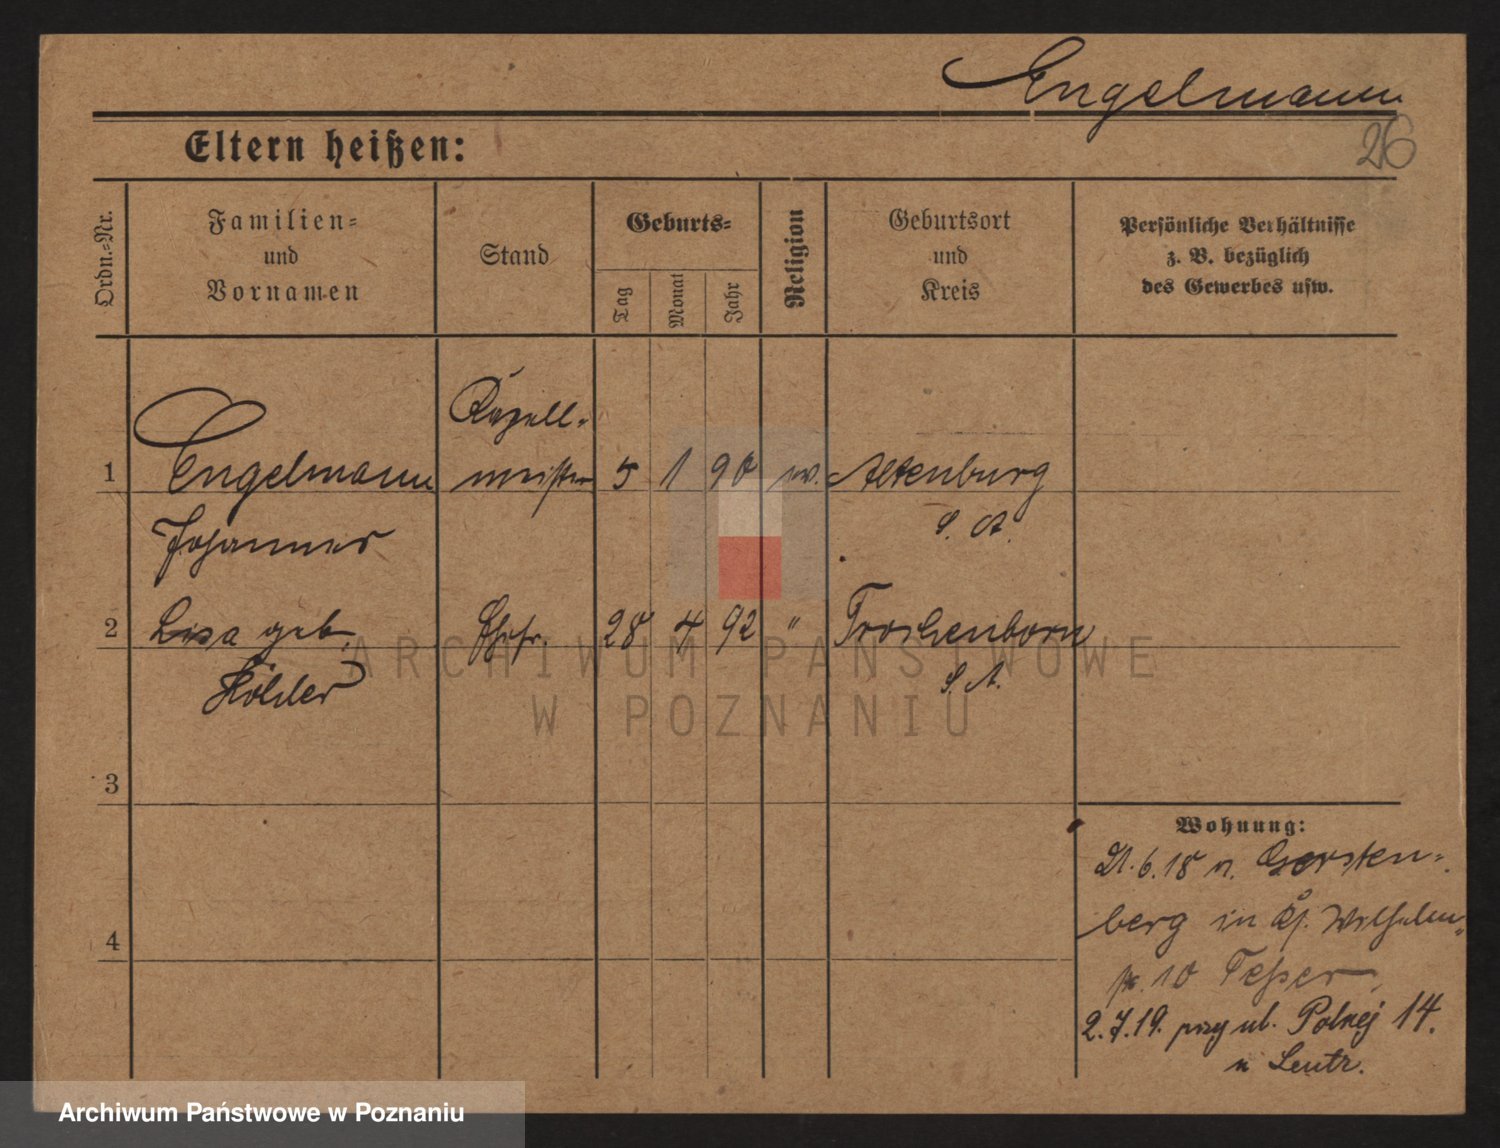 Engelmann
26
Eltern heißen:
Ordn.=Nr.
Familien=
und
Vornamen
Stand
Geburts=
Tag
Monat
Jahr
Religion
Geburtsort
und
Kreis
Persönliche Verhältnisse
z. B. bezüglich
des Gewerbes usw.
Kapell=
1 Engelmann meister 5 1 90 ev. Altenburg
Johannes S. A.
2 Lisa geb. Ehefr. 28 4 92 " Trockenborn
Köhler S. A.
3
4
Wohnung:
21.6.18 n. Gersten=
berg in Wilhelm
10
2.7.19. przy ul. Polnej 14.
ARCHIWUM PAŃSTWOWE
W POZNANIU
Archiwum Państwowe w Poznaniu